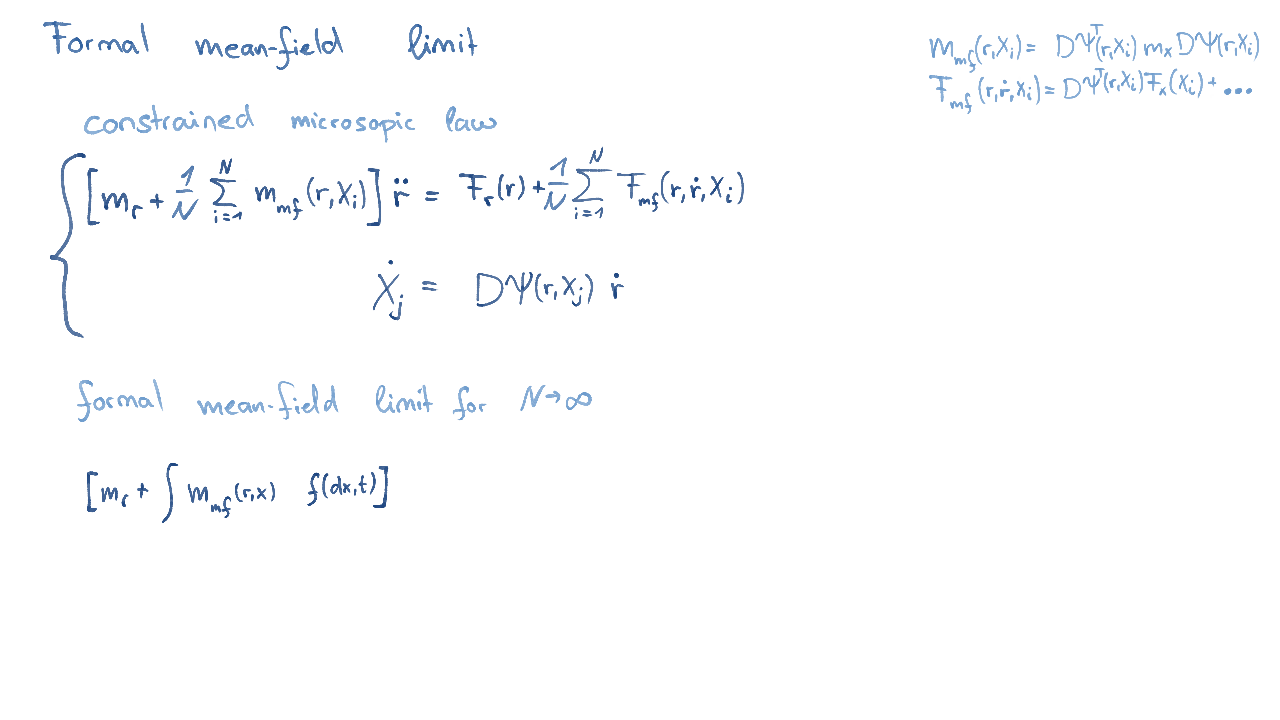 Formal mean-field limit
m_mf(r,X_i) = DΨ^T(r,X_i) m_x DΨ(r,X_i)
F_mf(r,ṙ,X_i) = DΨ^T(r,X_i) F_x(X_i) + ...
constrained microsopic law
[m_r + 1/N ∑_{i=1}^N m_mf(r,X_i)] r̈ = F_r(r) + 1/N ∑_{i=1}^N F_mf(r,ṙ,X_i)
Ẋ_j = DΨ(r,X_j) ṙ
formal mean-field limit for N→∞
[m_r + ∫ m_mf(r,x) f(dx,t)]